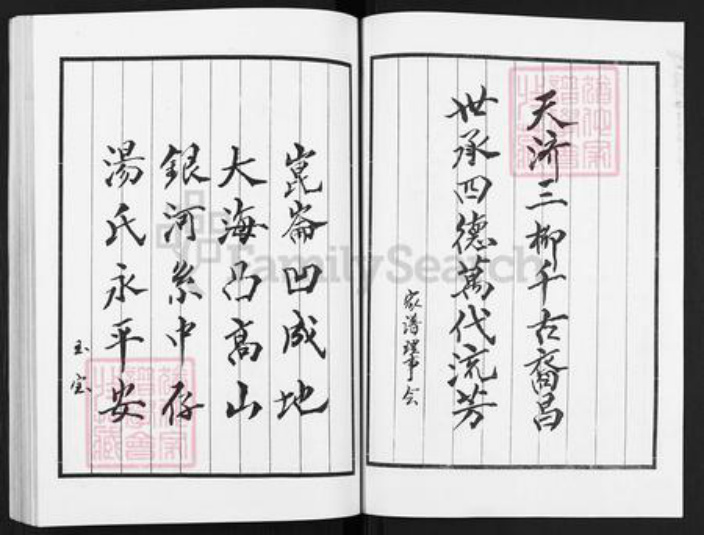 天济三柳千古裔昌
世承四德萬代流芳
家谱理事会
崑崙凹成地
大海凸高山
銀河系中存
湯氏永平安
玉宝
FamilySearch